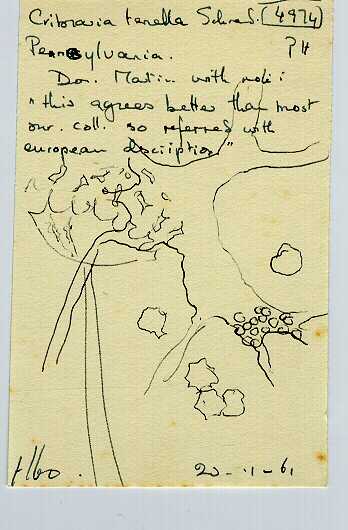 Cribraria tenella Schrad. (4974)
Pennsylvania. PH
Don. Martin with note:
"this agrees better than most
our. coll. so referred with
european description"
20-11-61